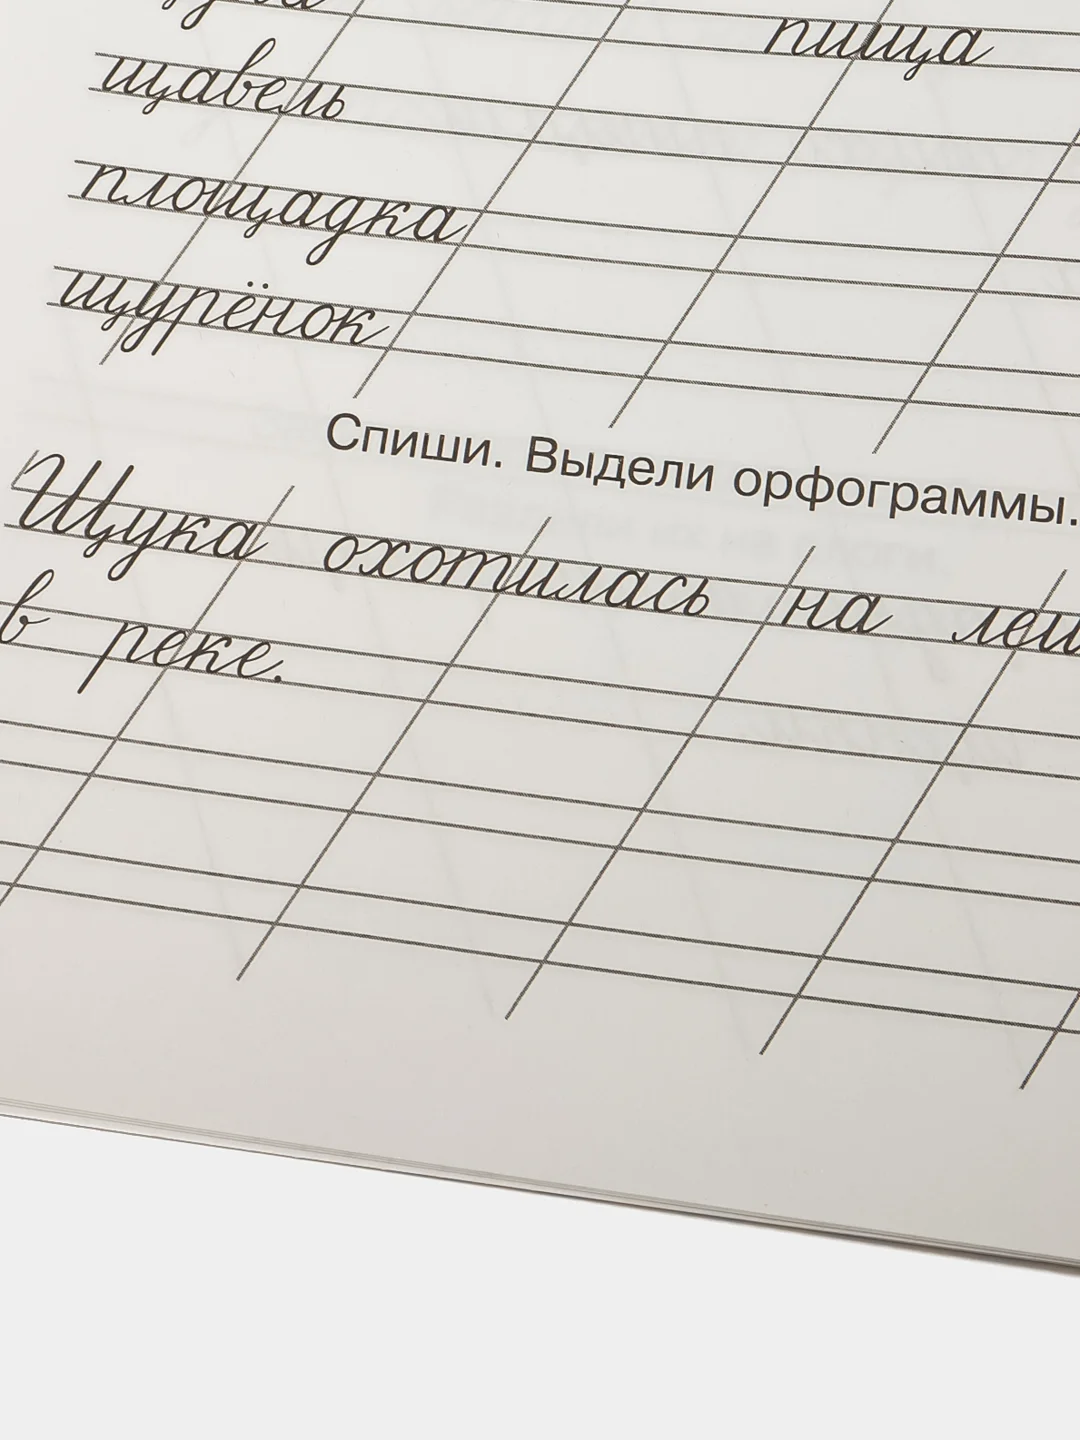 пища
щавель
площадка
щурёнок
Спиши. Выдели орфограммы.
Щука охотилась на
в реке.